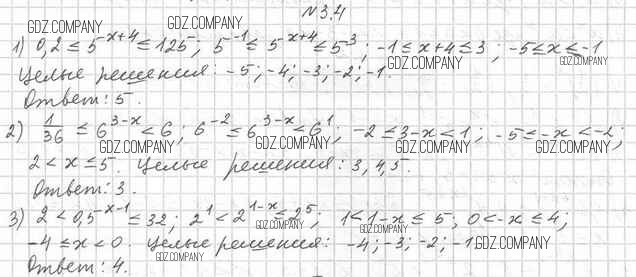 №3.4
1) 0,2 ≤ 5^{x+4} ≤ 125; 5^{-1} ≤ 5^{x+4} ≤ 5^{3}; -1 ≤ x+4 ≤ 3; -5 ≤ x ≤ -1
Целые решения: -5; -4; -3; -2; -1.
Ответ: 5.
2) 1/36 ≤ 6^{3-x} < 6; 6^{-2} ≤ 6^{3-x} < 6^{1}; -2 ≤ 3-x < 1; -5 ≤ -x < -2;
2 < x ≤ 5. Целые решения: 3, 4, 5.
Ответ: 3.
3) 2 < 0,5^{x-1} ≤ 32; 2^{1} < 2^{1-x} ≤ 2^{5}; 1 < 1-x ≤ 5, 0 < -x ≤ 4;
-4 ≤ x < 0. Целые решения: -4; -3; -2; -1.
Ответ: 4.
GDZ.COMPANY
GDZ.COMPANY
GDZ.COMPANY
GDZ.COMPANY
GDZ.COMPANY
GDZ.COMPANY
GDZ.COMPANY
GDZ.COMPANY
GDZ.COMPANY
GDZ.COMPANY
GDZ.COMPANY